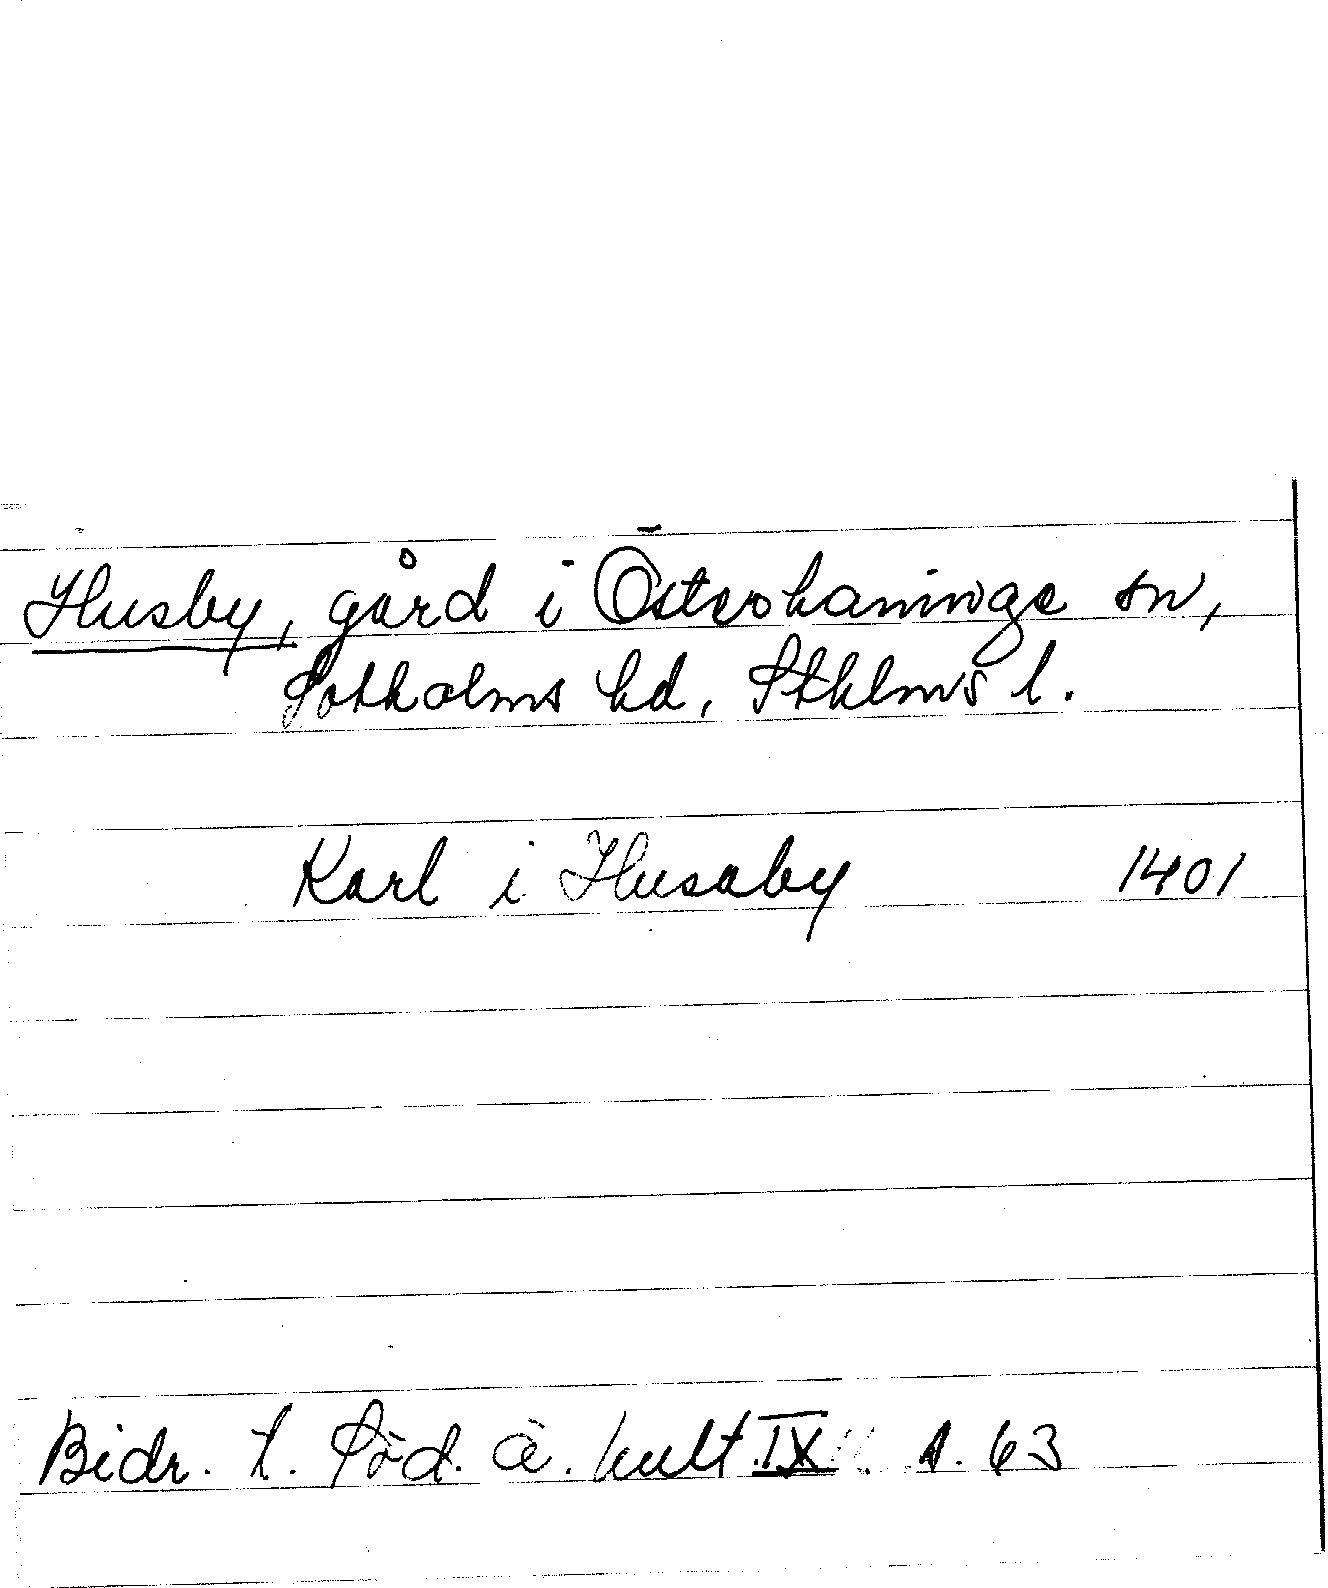 Husby, gård i Österhaninge sn,
Sotholms hd, Sthlms l.
Karl i Husaby 1401
Bidr. t. Söd. ä. kult. IX s. 63